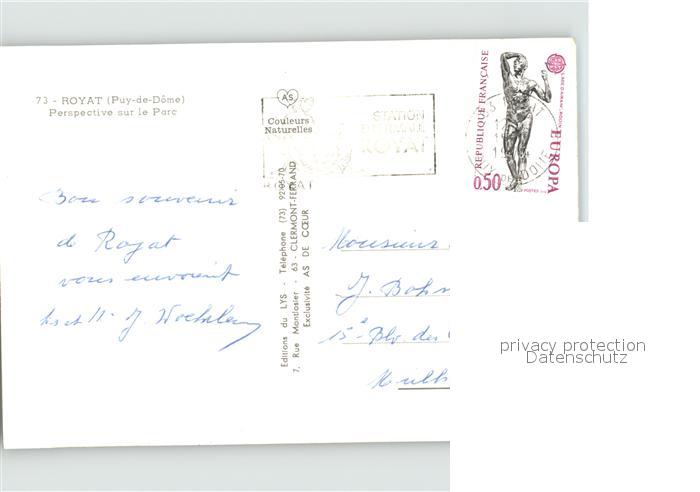 73 - ROYAT (Puy-de-Dôme)
Perspective sur le Parc
AS
Couleurs
Naturelles
STATION
THERMALE
ROYAT
ROYAT
RÉPUBLIQUE FRANÇAISE
0,50
POSTES
EUROPA
Bon souvenir
de Royat
vous envoient
et J.
Editions du LYS - Téléphone (73) 92-05-70
7, Rue Montlosier - 63 - CLERMONT-FERRAND
Exclusivité AS DE CŒUR
Monsieur
J.
15 Blv. des
privacy protection
Datenschutz